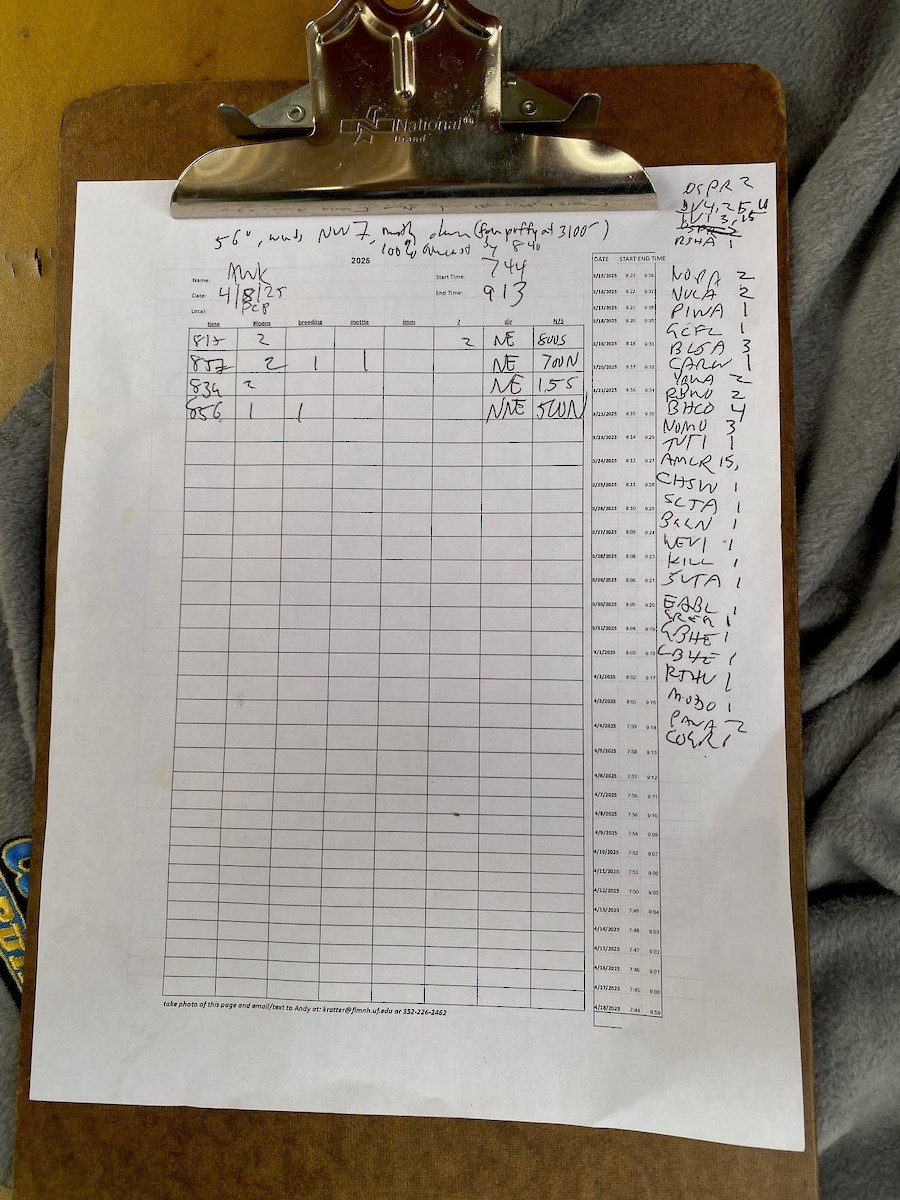 National
Brand
56°, winds NW 7, mostly clear (from puffy at 3100')
100% overcast by 840
2025
Name: AWK
Date: 4/8/25
Local: PCP
Start Time: 744
End Time: 913
time #loons breeding mottle imm ? dir N/S
815 2 2 NE 800S
857 2 1 1 NE 700N
834 2 NE 1.5S
856 1 1 NNE 500N
take photo of this page and email/text to Andy at: kratter@flmnh.ufl.edu or 352-226-2462
DATE START END TIME
3/15/2025 8:23 9:38
3/16/2025 8:22 9:37
3/17/2025 8:21 9:36
3/18/2025 8:20 9:35
3/19/2025 8:18 9:33
3/20/2025 8:17 9:32
3/21/2025 8:16 9:31
3/22/2025 8:15 9:30
3/23/2025 8:14 9:29
3/24/2025 8:12 9:27
3/25/2025 8:11 9:26
3/26/2025 8:10 9:25
3/27/2025 8:09 9:24
3/28/2025 8:08 9:23
3/29/2025 8:06 9:21
3/30/2025 8:05 9:20
3/31/2025 8:04 9:19
4/1/2025 8:03 9:18
4/2/2025 8:02 9:17
4/3/2025 8:01 9:16
4/4/2025 7:59 9:14
4/5/2025 7:58 9:13
4/6/2025 7:57 9:12
4/7/2025 7:56 9:11
4/8/2025 7:56 9:10
4/9/2025 7:54 9:09
4/10/2025 7:52 9:07
4/11/2025 7:51 9:06
4/12/2025 7:50 9:05
4/13/2025 7:49 9:04
4/14/2025 7:48 9:03
4/15/2025 7:47 9:02
4/16/2025 7:46 9:01
4/17/2025 7:45 9:00
4/18/2025 7:44 8:59
OSPR 2
RSHA 1
NOPA 2
NOCA 2
PIWA 1
GCFL 1
BLJA 3
CARW 1
RBWO 2
BHCO 4
NOMO 3
TUTI 1
AMCR 15,
CHSW 1
SUTA 1
BGGN 1
WEVI 1
KILL 1
SUTA 1
EABL 1
GREG 1
GBHE 1
RTHU 1
MODO 1
PAWA 2
COGR 1